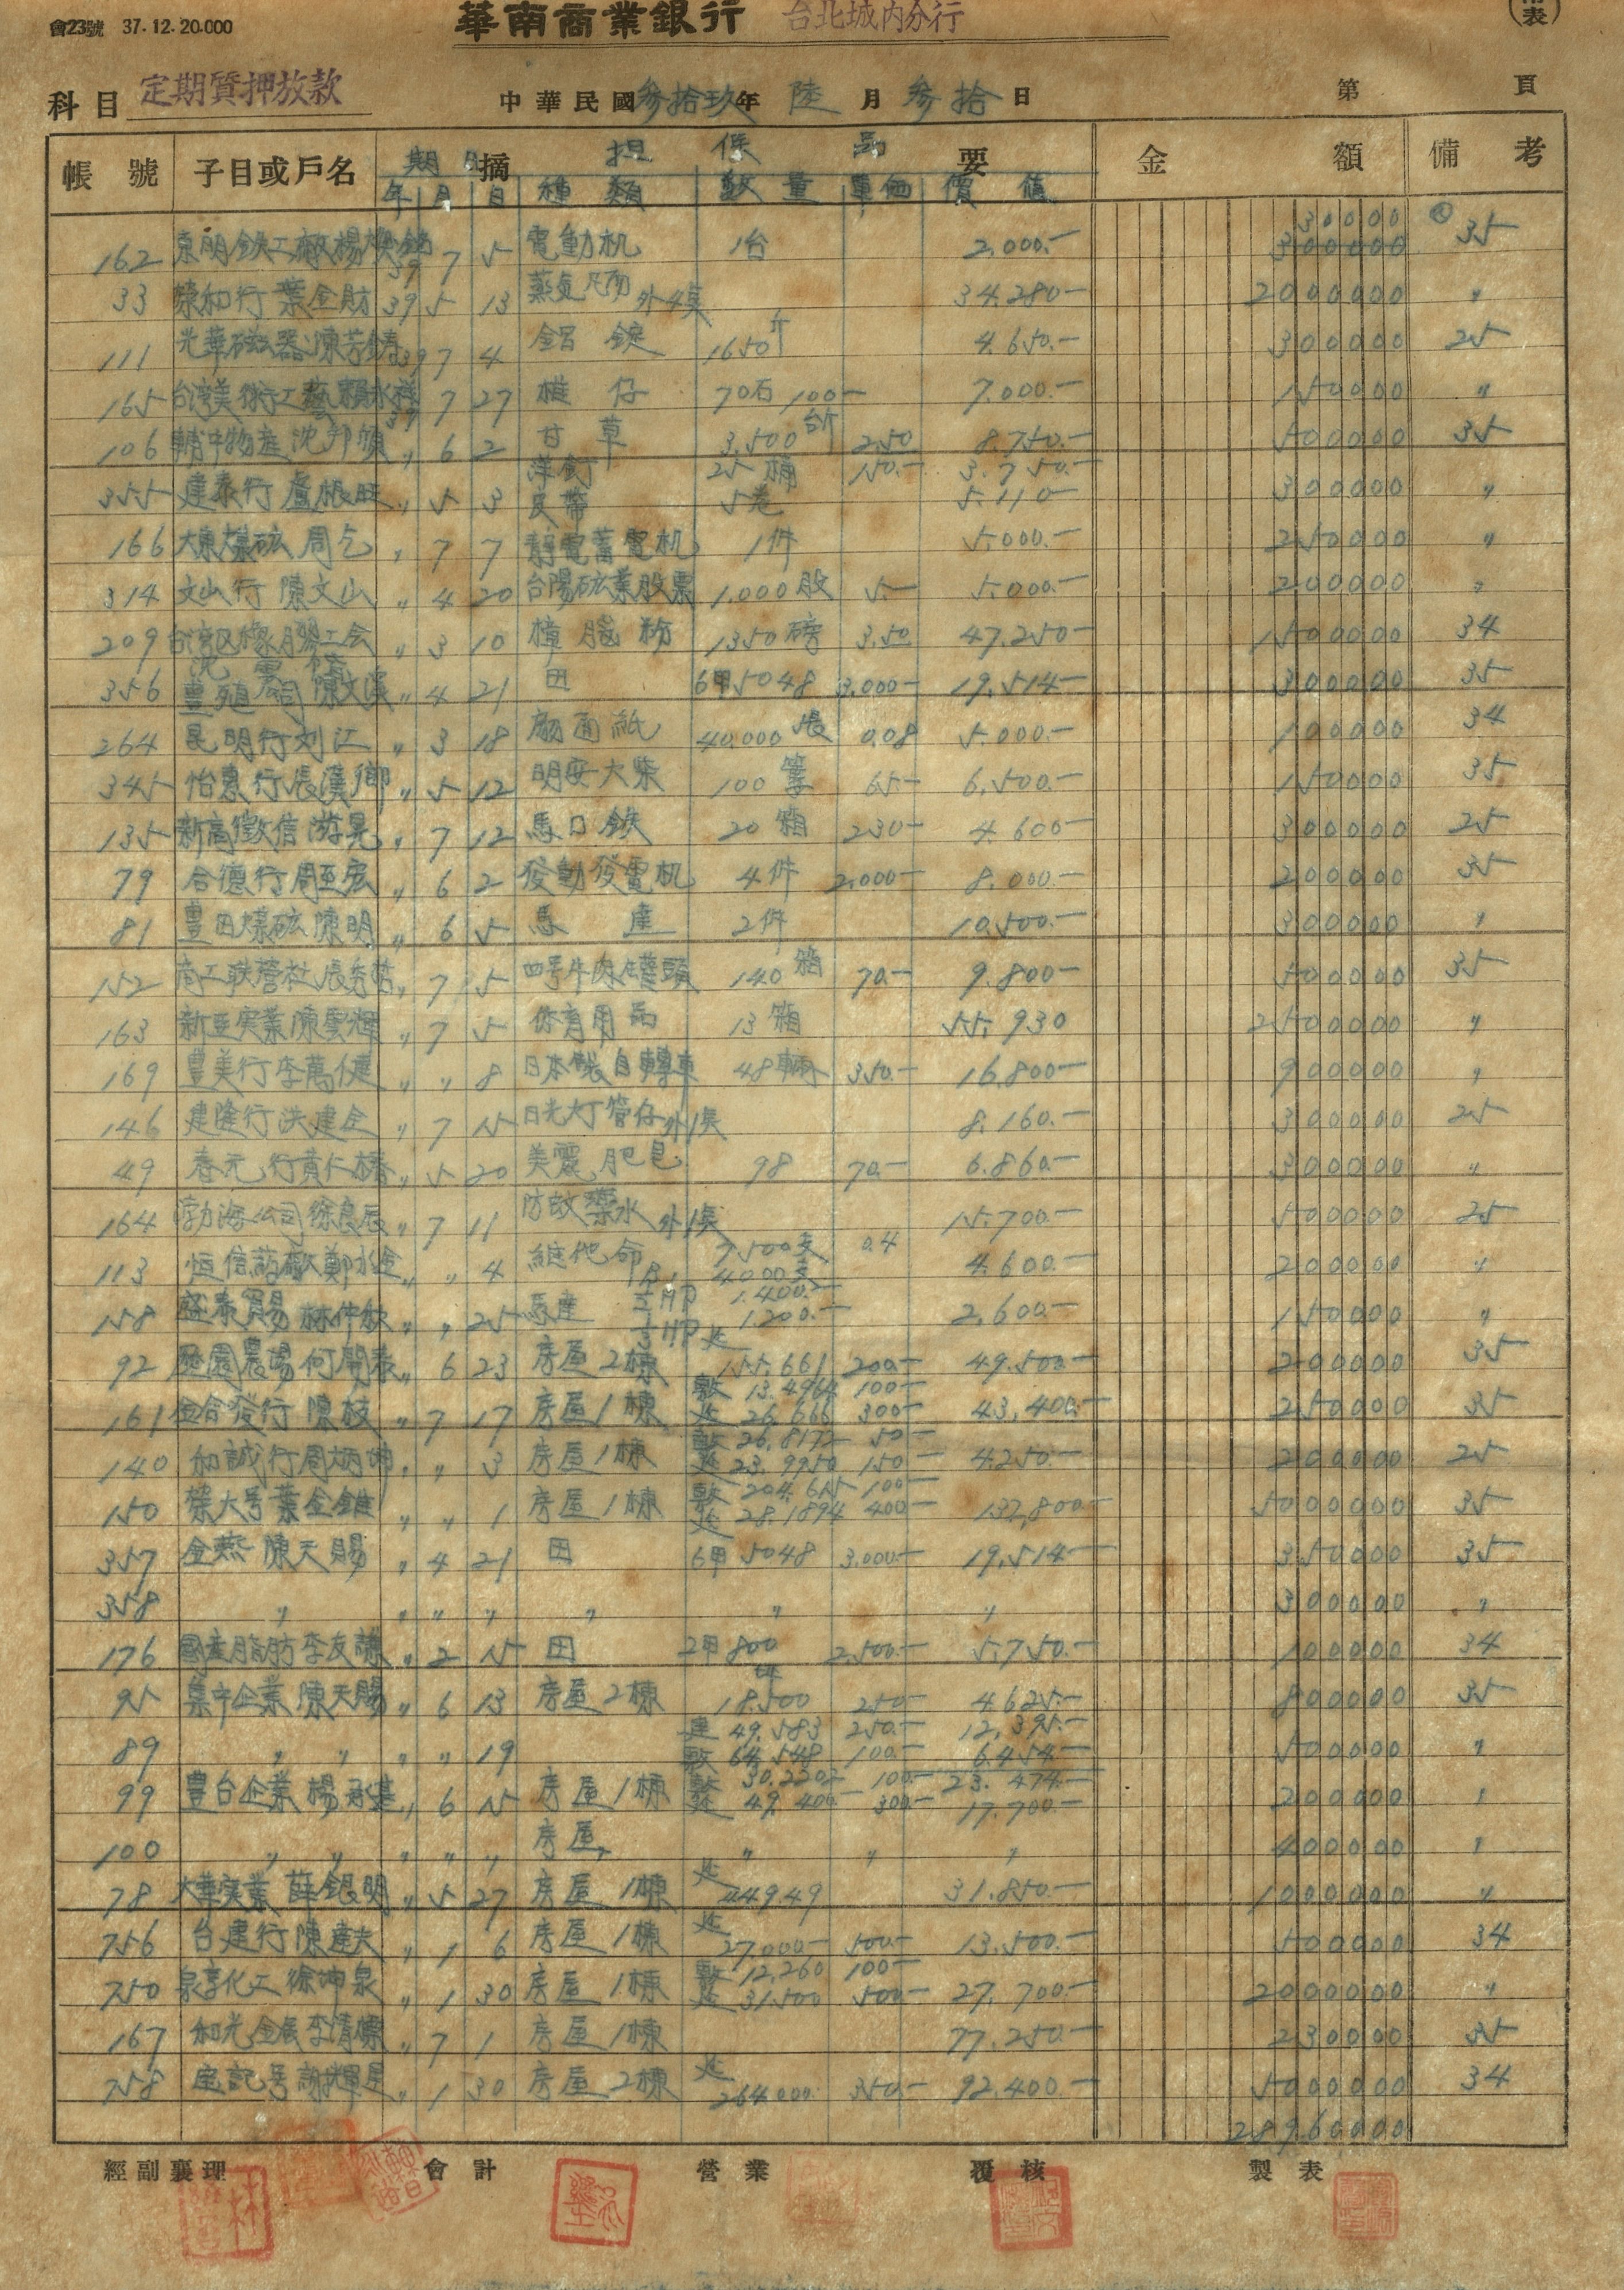 會23號 37.12.20.000
華南商業銀行 台北城内分行
科目 定期質押放款 中華民國 參拾玖年 陸月 參拾日 第 頁
帳號 子目或戶名 期日 摘 担保品 要 金額 備考
年 月 日 種類 數量 單価 價值
30000
162 東明鉄工廠楊 39 7 5 電動机 1台 2,000.- 300000 35
33 榮和行 葉金財 39 5 13 蒸気 外4臭 34,280- 2000000 〃
111 光華磁器 陳芳鑄 39 7 4 鋁錠 1650斤 4,650.- 300000 25
165 台湾美術工藝 賴水 39 7 27 樣仔 70石 100- 7,000.- 150000 〃
106 輔中物產 沈邦 〃 6 2 甘草 3,500台斤 2.50 8,750.- 500000 35
洋釘 25桶 150.- 3,750.-
355 建泰行 盧根旺 〃 5 3 皮帶 5卷 5,110- 300000 〃
166 大東煤砿 周乞 〃 7 7 靜電蓄電机 1件 5,000.- 250000 〃
314 文山行 陳文山 〃 4 20 台陽砿業股票 1,000股 5.- 5,000.- 200000 〃
209 台湾区橡膠工会 〃 3 10 樟腦粉 1350磅 3.50 47,250- 1500000 34
沈雲
356 豊殖公司 陳文漢 〃 4 21 田 6甲5048 3,000- 19,514- 300000 35
264 昆明行 刘江 〃 3 18 廟面紙 40,000張 0.08 5,000.- 100000 34
345 怡惠行 張漢鄉 〃 5 12 明安大柴 100簍 65- 6,500.- 150000 35
135 新高徵信 游晃 〃 7 12 馬口鉄 20箱 230- 4,600- 300000 25
79 合德行 周亞宏 〃 6 2 發動發電机 4件 2,000- 8,000.- 200000 35
81 豊田煤砿 陳明 〃 6 5 馬達 2件 10,500.- 300000 〃
152 商工联營社 張秀 〃 7 5 四号牛肉罐頭 140箱 70.- 9,800- 500000 35
163 新亞実業 陳雲輝 〃 7 5 体育用品 13箱 55,930 2500000 〃
169 豊美行 李萬健 〃 〃 8 日本製自轉車 48輛 350.- 16,800- 900000 〃
146 建隆行 洪建全 〃 7 15 日光灯管仔外1臭 8,160.- 300000 25
49 春元行 黄仁橋 〃 5 20 美麗肥皂 98 70.- 6,860.- 300000 〃
164 渤海公司 徐良辰 〃 7 11 防蚊藥水外1臭 15,700.- 500000 25
113 恒信 鄭水金 〃 〃 4 維他命 7500支 0.4 4,600.- 200000 〃
B1 4000支
158 盛泰貿易 林仲秋 〃 〃 25 馬達 1/2HP 1,400.- 2,600.- 150000 〃
1/3HP 1,200.-
92 農場 何開泰 〃 6 23 房屋2棟 建 155.661 200.- 49,500.- 200000 35
161 金合發行 陳枝 〃 7 17 房屋1棟 敷 13.4964 100- 43,400.- 250000 35
建 26.666 300-
140 和誠行 周炳坤 〃 〃 3 房屋1棟 敷 26.8172 50- 4,250.- 200000 25
建 23.9950 150-
150 榮大号 葉金錐 〃 〃 1 房屋1棟 敷 204.615 100- 132,800.- 5000000 35
建 28.1894 400-
357 金燕 陳天賜 〃 4 21 田 6甲5048 3,000.- 19,514- 350000 35
358 〃 〃 〃 〃 〃 〃 〃 300000 〃
176 國産脂肪 李友 〃 2 15 田 2甲800 2,500.- 5,750.- 100000 34
95 集中企業 陳天賜 〃 6 13 房屋2棟 18.500 250- 4,625.- 800000 35
建 49.583 250.- 12,395.-
89 〃 〃 〃 〃 19 敷 64.548 100.- 6,454- 500000 〃
23,474.-
99 豊台企業 楊承基 〃 6 15 房屋1棟 敷 30.2202 100.- 17,700.- 200000 〃
建 49.400- 300.-
100 〃 〃 〃 〃 〃 房屋 〃 〃 〃 400000 〃
78 大華実業 薛銀明 〃 5 27 房屋1棟 建 449.49 31,850.- 1000000 〃
756 台建行 陳達夫 〃 1 6 房屋1棟 建 27.000- 500.- 13,500.- 500000 34
750 泉亨化工 徐坤泉 〃 1 30 房屋1棟 敷 12.260 100- 27,700.- 2000000 〃
建 31.500 500-
167 和光金展 李清標 〃 7 1 房屋1棟 77,250.- 230000 35
758 定記号 謝輝星 〃 1 30 房屋2棟 建 264.000. 350.- 92,400.- 5000000 34
28960000
經副襄理 會計 營業 覆核 製表